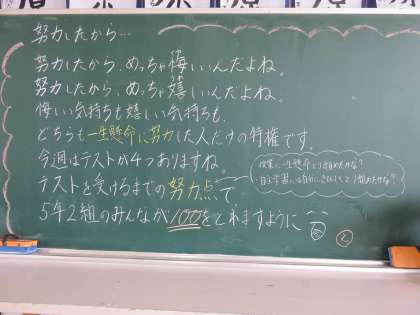 努力したから…
努力したから、めっちゃ悔しいんだよね。
努力したから、めっちゃ嬉しいんだよね。
悔しい気持ちも嬉しい気持ちも、
どちらも一生懸命に努力した人だけの特権です。
今週はテストが4つありますね。
テストを受けるまでの努力点で、
5年2組のみんなが100をとれますように
・授業に一生懸命とり組めたかな?
・自主学習には自分にきびしくとり組めたかな?